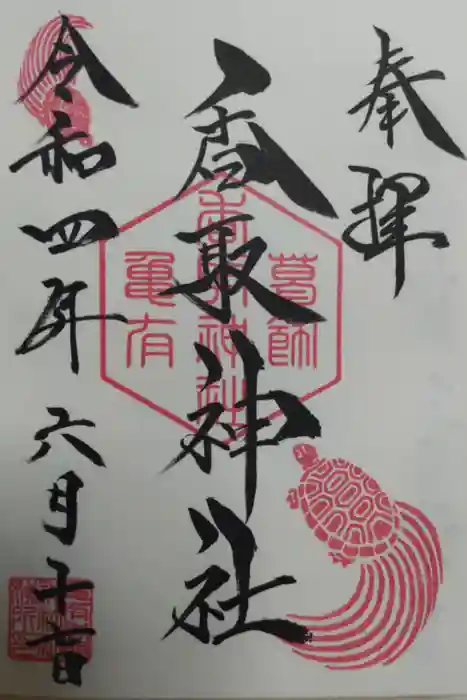 奉拝
香取神社
葛飾
香取神社
亀有
令和四年六月十一日